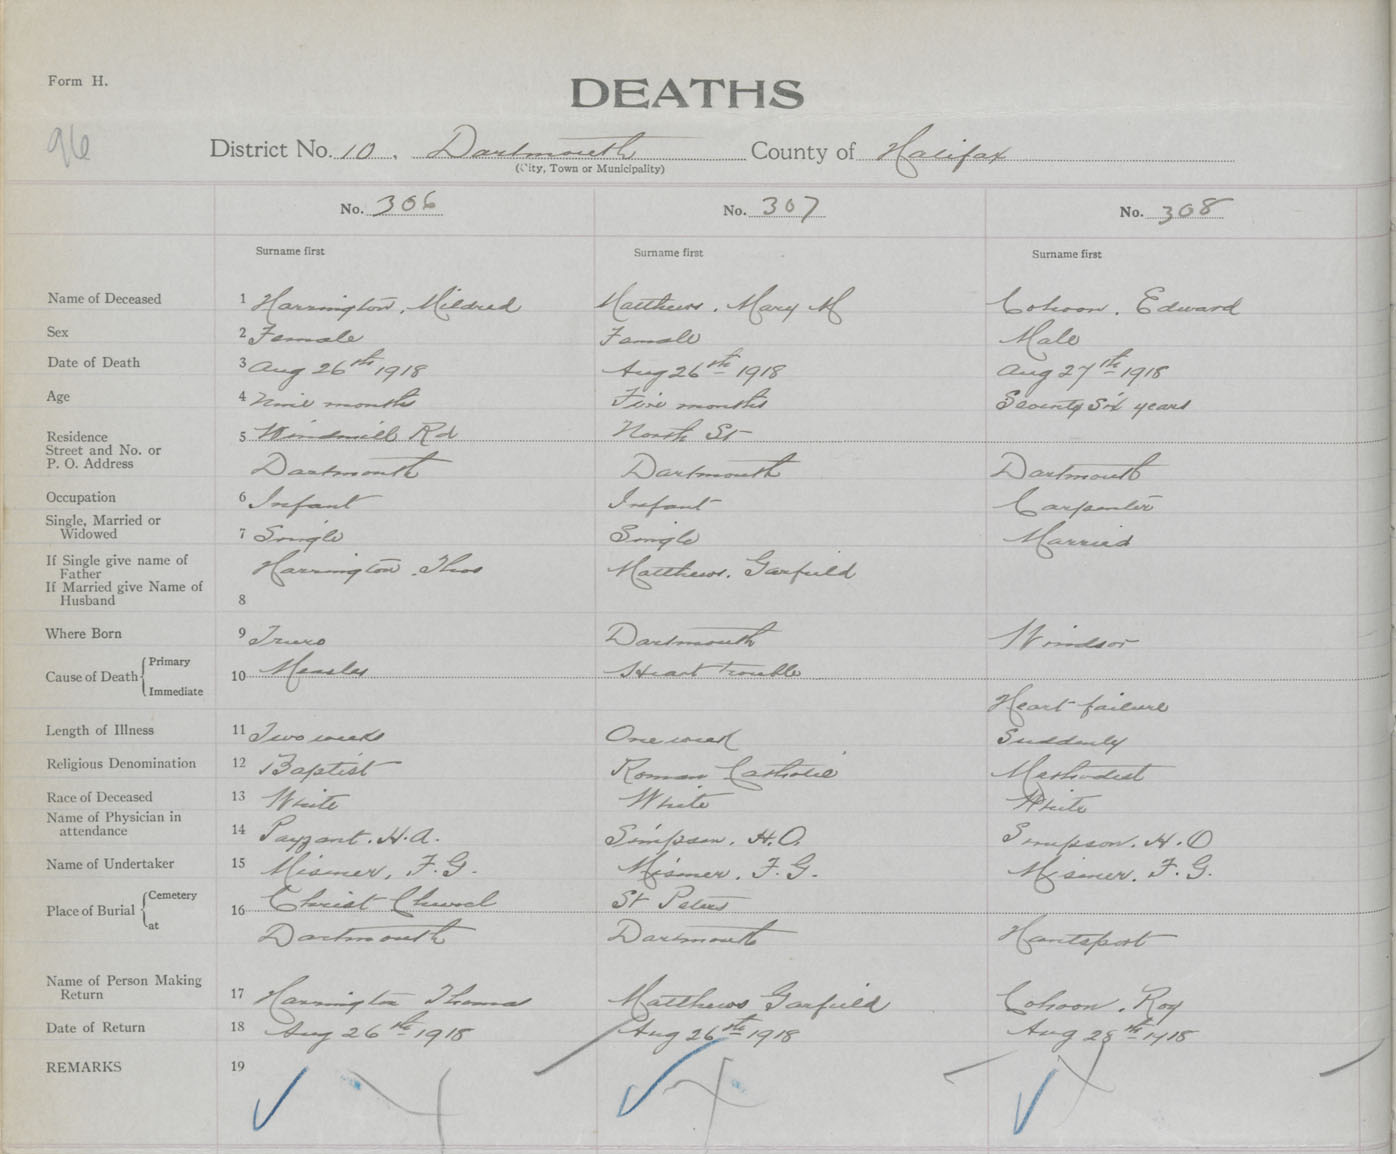 Form H.
DEATHS
96
District No. 10, Dartmouth County of Halifax
(City, Town or Municipality)
No. 306 No. 307 No. 308
Surname first Surname first Surname first
Name of Deceased 1 Harrington, Mildred Matthews, Mary M Cohoon, Edward
Sex 2 Female Female Male
Date of Death 3 Aug 26th 1918 Aug 26th 1918 Aug 27th 1918
Age 4 Nine months Five months Seventy Six years
Residence 5 Windmill Rd North St
Street and No. or
P. O. Address Dartmouth Dartmouth Dartmouth
Occupation 6 Infant Infant Carpenter
Single, Married or
Widowed 7 Single Single Married
If Single give name of
Father Harrington, Thos Matthews, Garfield
If Married give Name of
Husband 8
Where Born 9 Truro Dartmouth Windsor
Cause of Death Primary 10 Measles Heart trouble
Immediate Heart failure
Length of Illness 11 Two weeks One week Suddenly
Religious Denomination 12 Baptist Roman Catholic Methodist
Race of Deceased 13 White White White
Name of Physician in
attendance 14 Payzant, H.A. Simpson, H.O. Simpson, H.O
Name of Undertaker 15 Misener, F.G. Misener, F.G. Misener, F.G.
Place of Burial Cemetery 16 Christ Church St Peters
at Dartmouth Dartmouth Hantsport
Name of Person Making
Return 17 Harrington Thomas Matthews Garfield Cohoon, Roy
Date of Return 18 Aug 26th 1918 Aug 26th 1918 Aug 28th 1918
REMARKS 19